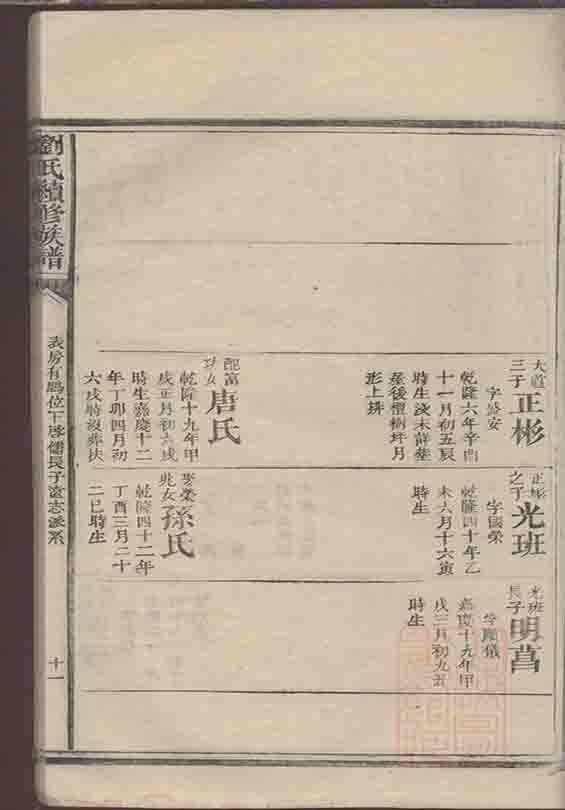 大
三子
正彬
字盛安
乾隆六年辛酉
十一月初五辰
時生沒未詳塟
屋後檀樹坪月
形上排
配富
女
唐氏
乾隆十九年甲
戌正月初六戌
時生嘉慶十二
年丁卯四月初
六戌時沒葬扶
正彬
之子
光班
字國榮
乾隆四十年乙
未六月十六寅
時生
娶榮
女
孫氏
乾隆四十二年
丁酉三月二十
二巳時生
光班
長子
明菖
字鳳儀
嘉慶十九年甲
戌三月初九丑
時生
劉氏續修族譜
表房有 位下啓儒長子 志派系
十一